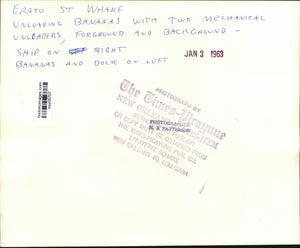 ERATO ST WHARF
UNLOADING BANANAS WITH TWO MECHANICAL
UNLOADERS, FORGROUND AND BACKGROUND -
SHIP ON RIGHT
BANANAS AND DOCK ON LEFT
JAN 3 1963
PHOTOGRAPH BY
The Times-Picayune
NEW ORLEANS STATES-ITEM
PHOTOGRAPHER
M. E. PATTERSON
OR COPY MUST BE OBTAINED FROM
THE TIMES-PICAYUNE PUB. CO.
LAFAYETTE SQUARE
NEW ORLEANS 40, LOUISIANA